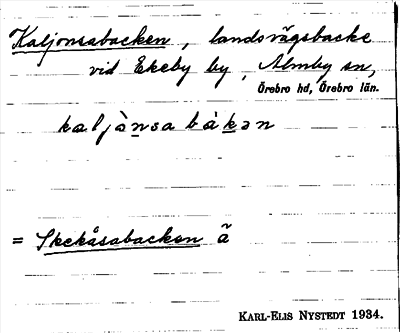 Kaljonsabacken, landsvägsbacke
vid Ekeby by, Almby sn,
Örebro hd, Örebro län.
kaljònsa bàkən
= Skekåsabacken ã
KARL-ELIS NYSTEDT 1934.